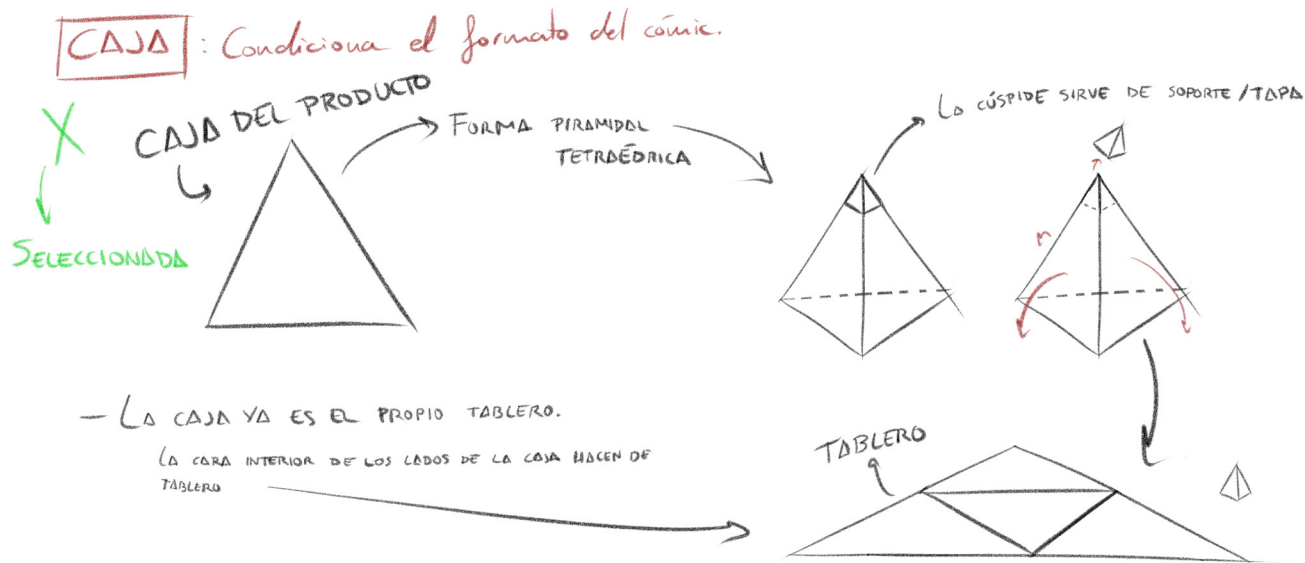 CAJA : Condiciona el formato del cómic.
X
SELECCIONADA
CAJA DEL PRODUCTO
FORMA PIRAMIDAL
TETRAÉDRICA
LA CÚSPIDE SIRVE DE SOPORTE / TAPA
— LA CAJA YA ES EL PROPIO TABLERO.
LA CARA INTERIOR DE LOS LADOS DE LA CAJA HACEN DE
TABLERO
TABLERO